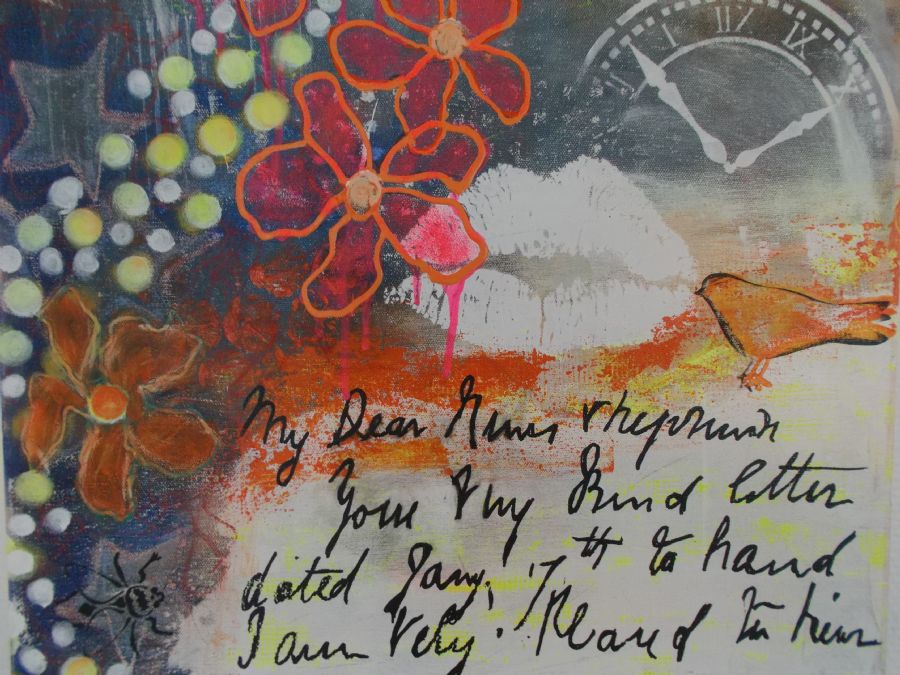 I XII XI X
My Dear
Your Very Kind letter
dated Jany, 17th to hand
I am Very Pleased to hear